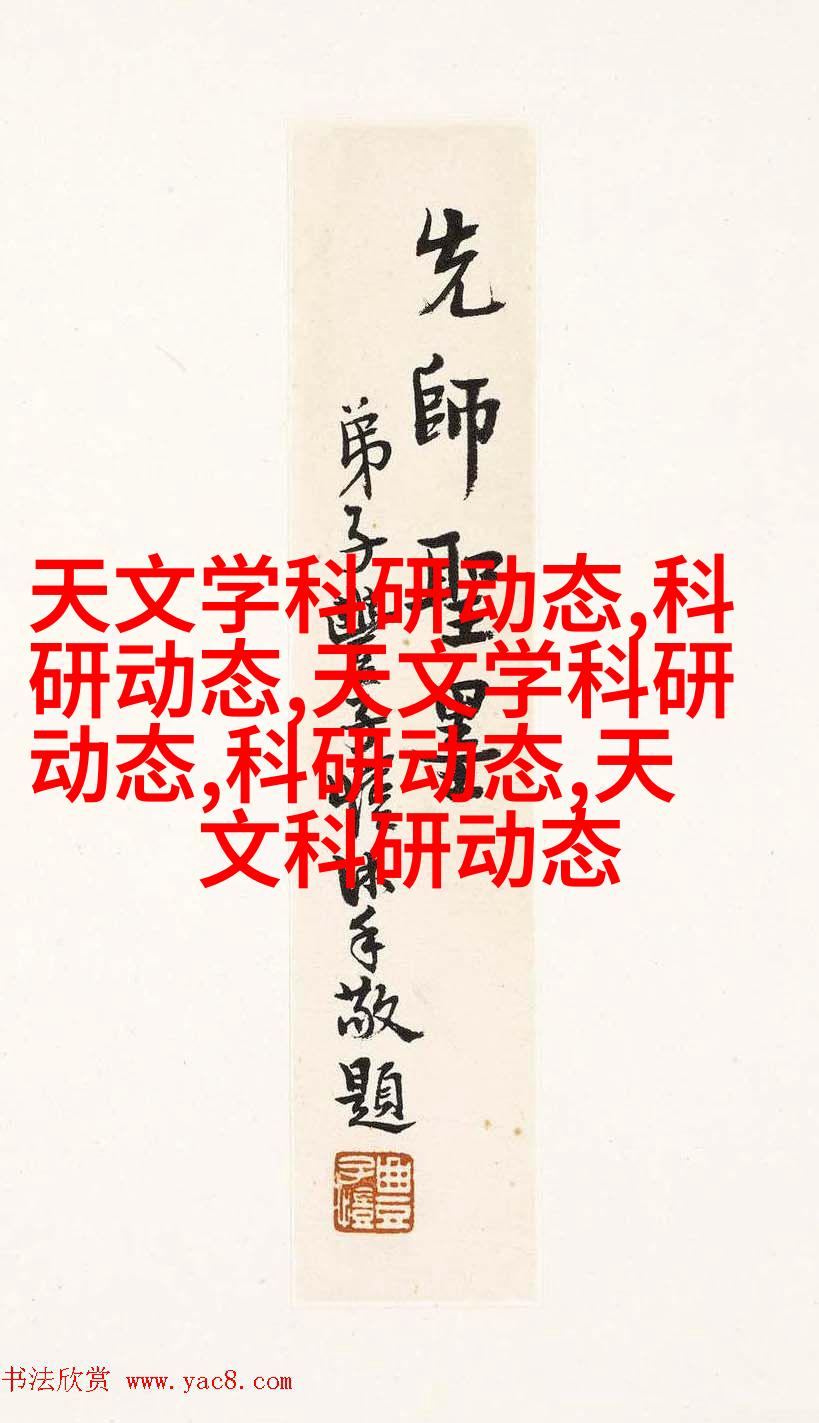 先師聖墨
弟子豐子愷沐手敬題
豐子愷
天文学科研动态,科
研动态,天文学科研
动态,科研动态,天
文科研动态
书法欣赏 www.yac8.com